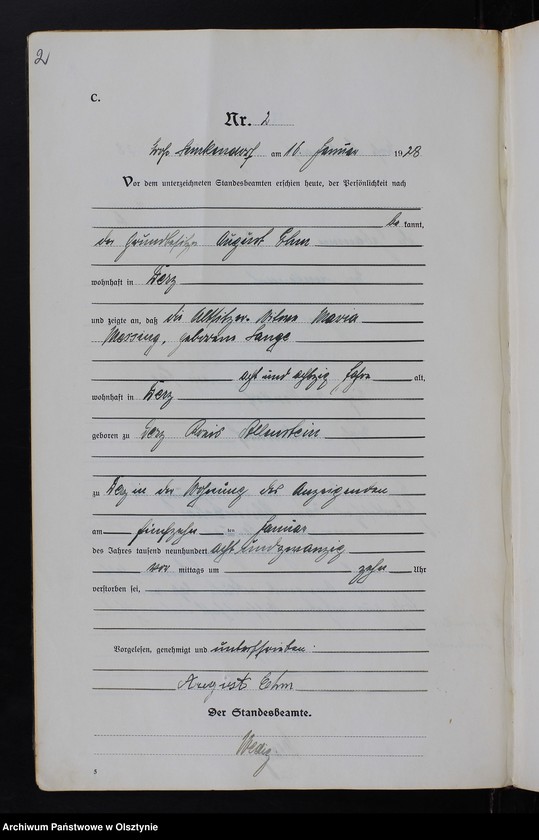 2
C.
Nr. 2
am 16. Januar 1928
Vor dem unterzeichneten Standesbeamten erschien heute, der Persönlichkeit nach
be kannt,
der Grundbesitzer August
wohnhaft in
und zeigte an, daß die Altsitzer-Witwe Maria
Massing, geborene Lange
acht und achtzig Jahre alt,
wohnhaft in
geboren zu Kreis Allenstein
zu in der Wohnung des Anzeigenden
am fünfzehn ten Januar
des Jahres tausend neunhundert acht und zwanzig
vor mittags um zehn Uhr
verstorben sei,
Vorgelesen, genehmigt und unterschrieben.
August
Der Standesbeamte.
5
Archiwum Państwowe w Olsztynie